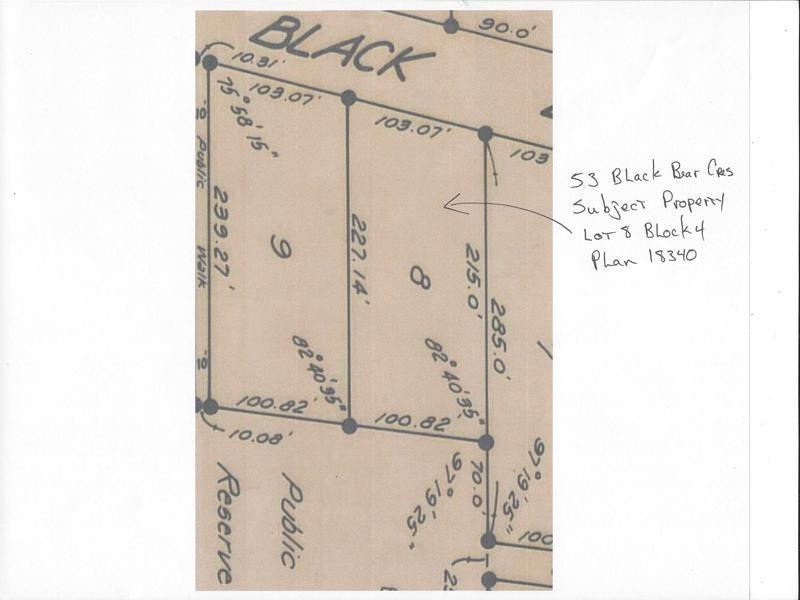 BLACK
90.0'
10.31'
103.07'
103.07'
103
75°58'15"
Public Walk
239.27'
9
227.14'
8
215.0'
285.0'
53 Black Bear Cres
Subject Property
Lot 8 Block 4
Plan 18340
82°40'35"
82°40'35"
100.82'
100.82
10.08'
70.0'
97°19'25"
97°19'25"
100
Public
Reserve